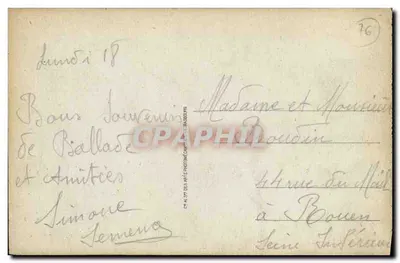 76
Lundi 18
Bons Souvenirs
de Ballade
et Amitiés
Simone
Madame et Monsieur
44 rue du
à Rouen
Seine Inférieure
CPAPHIL